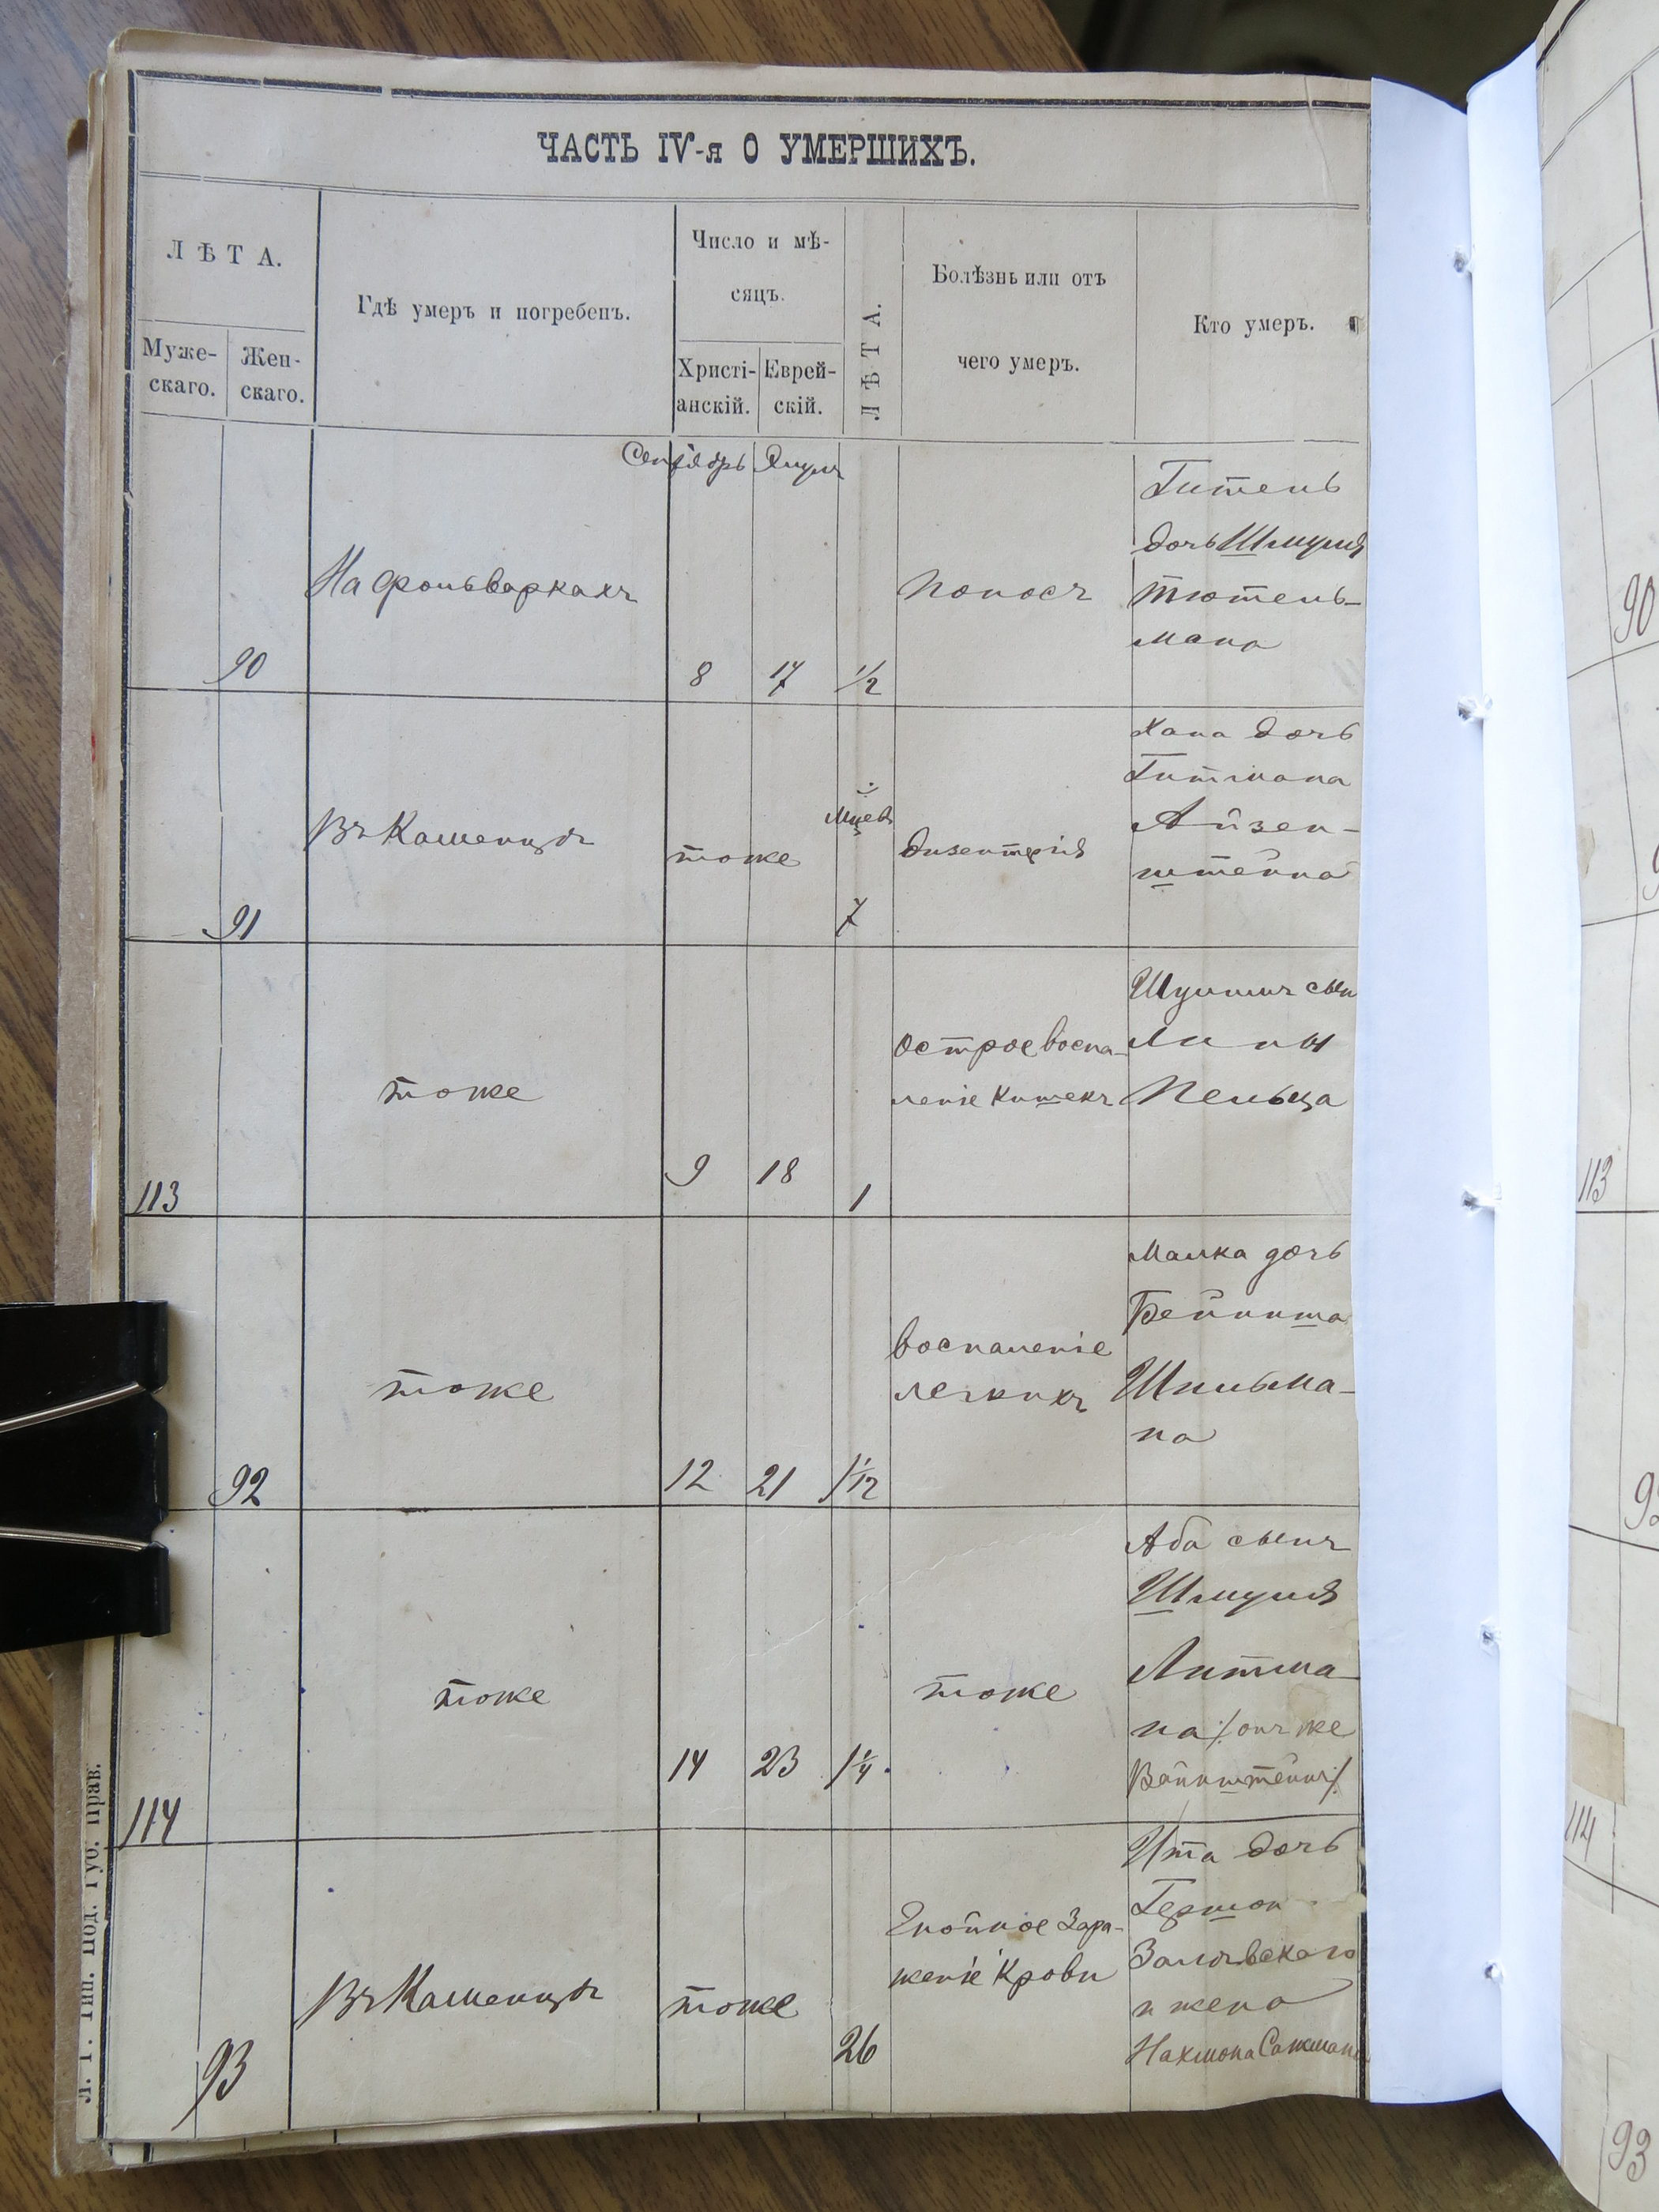 ЧАСТЬ IV-я О УМЕРШИХЪ.
ЛѢТА.
Муже-
скаго.
Жен-
скаго.
Гдѣ умеръ и погребенъ.
Число и мѣ-
сяцъ.
Христі-
анскій.
Еврей-
скій.
ЛѢТА.
Болѣзнь или отъ
чего умеръ.
Кто умеръ.
Сентябрь
90
На фольваркахъ
8
17
1/2
Поносъ
Гитель
дочь Шмуля
Тютель-
мана
91
Въ Каменцѣ
тоже
Мцевъ
7
дизентерія
Хана дочь
Гитмана
Айзен-
штейна
113
тоже
9
18
1
острое воспа-
леніе кишекъ
сын
Липы
Пельца
92
тоже
12
21
1 1/12
воспаленіе
легкихъ
Малка дочь
Бейниша
Шпильма-
на
114
тоже
14
23
1 1/4
тоже
Аба сынъ
Шмуля
Литма-
на /: онъ же
Вайнштейнъ :/
93
Въ Каменцѣ
тоже
26
Гнойное Зара-
женіе Крови
Ита дочь
Гершон
и жена
Нахмана
Л. Г. Тип. Под. Губ. Прав.
90
113
114
93